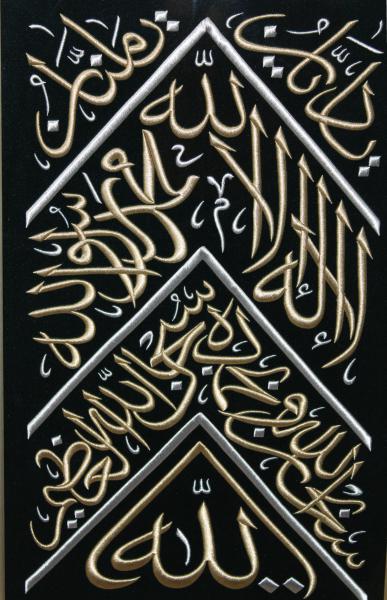 يا حنان يا منان
لا إله إلا الله محمد رسول الله
سبحان الله وبحمده سبحان الله العظيم
يا الله